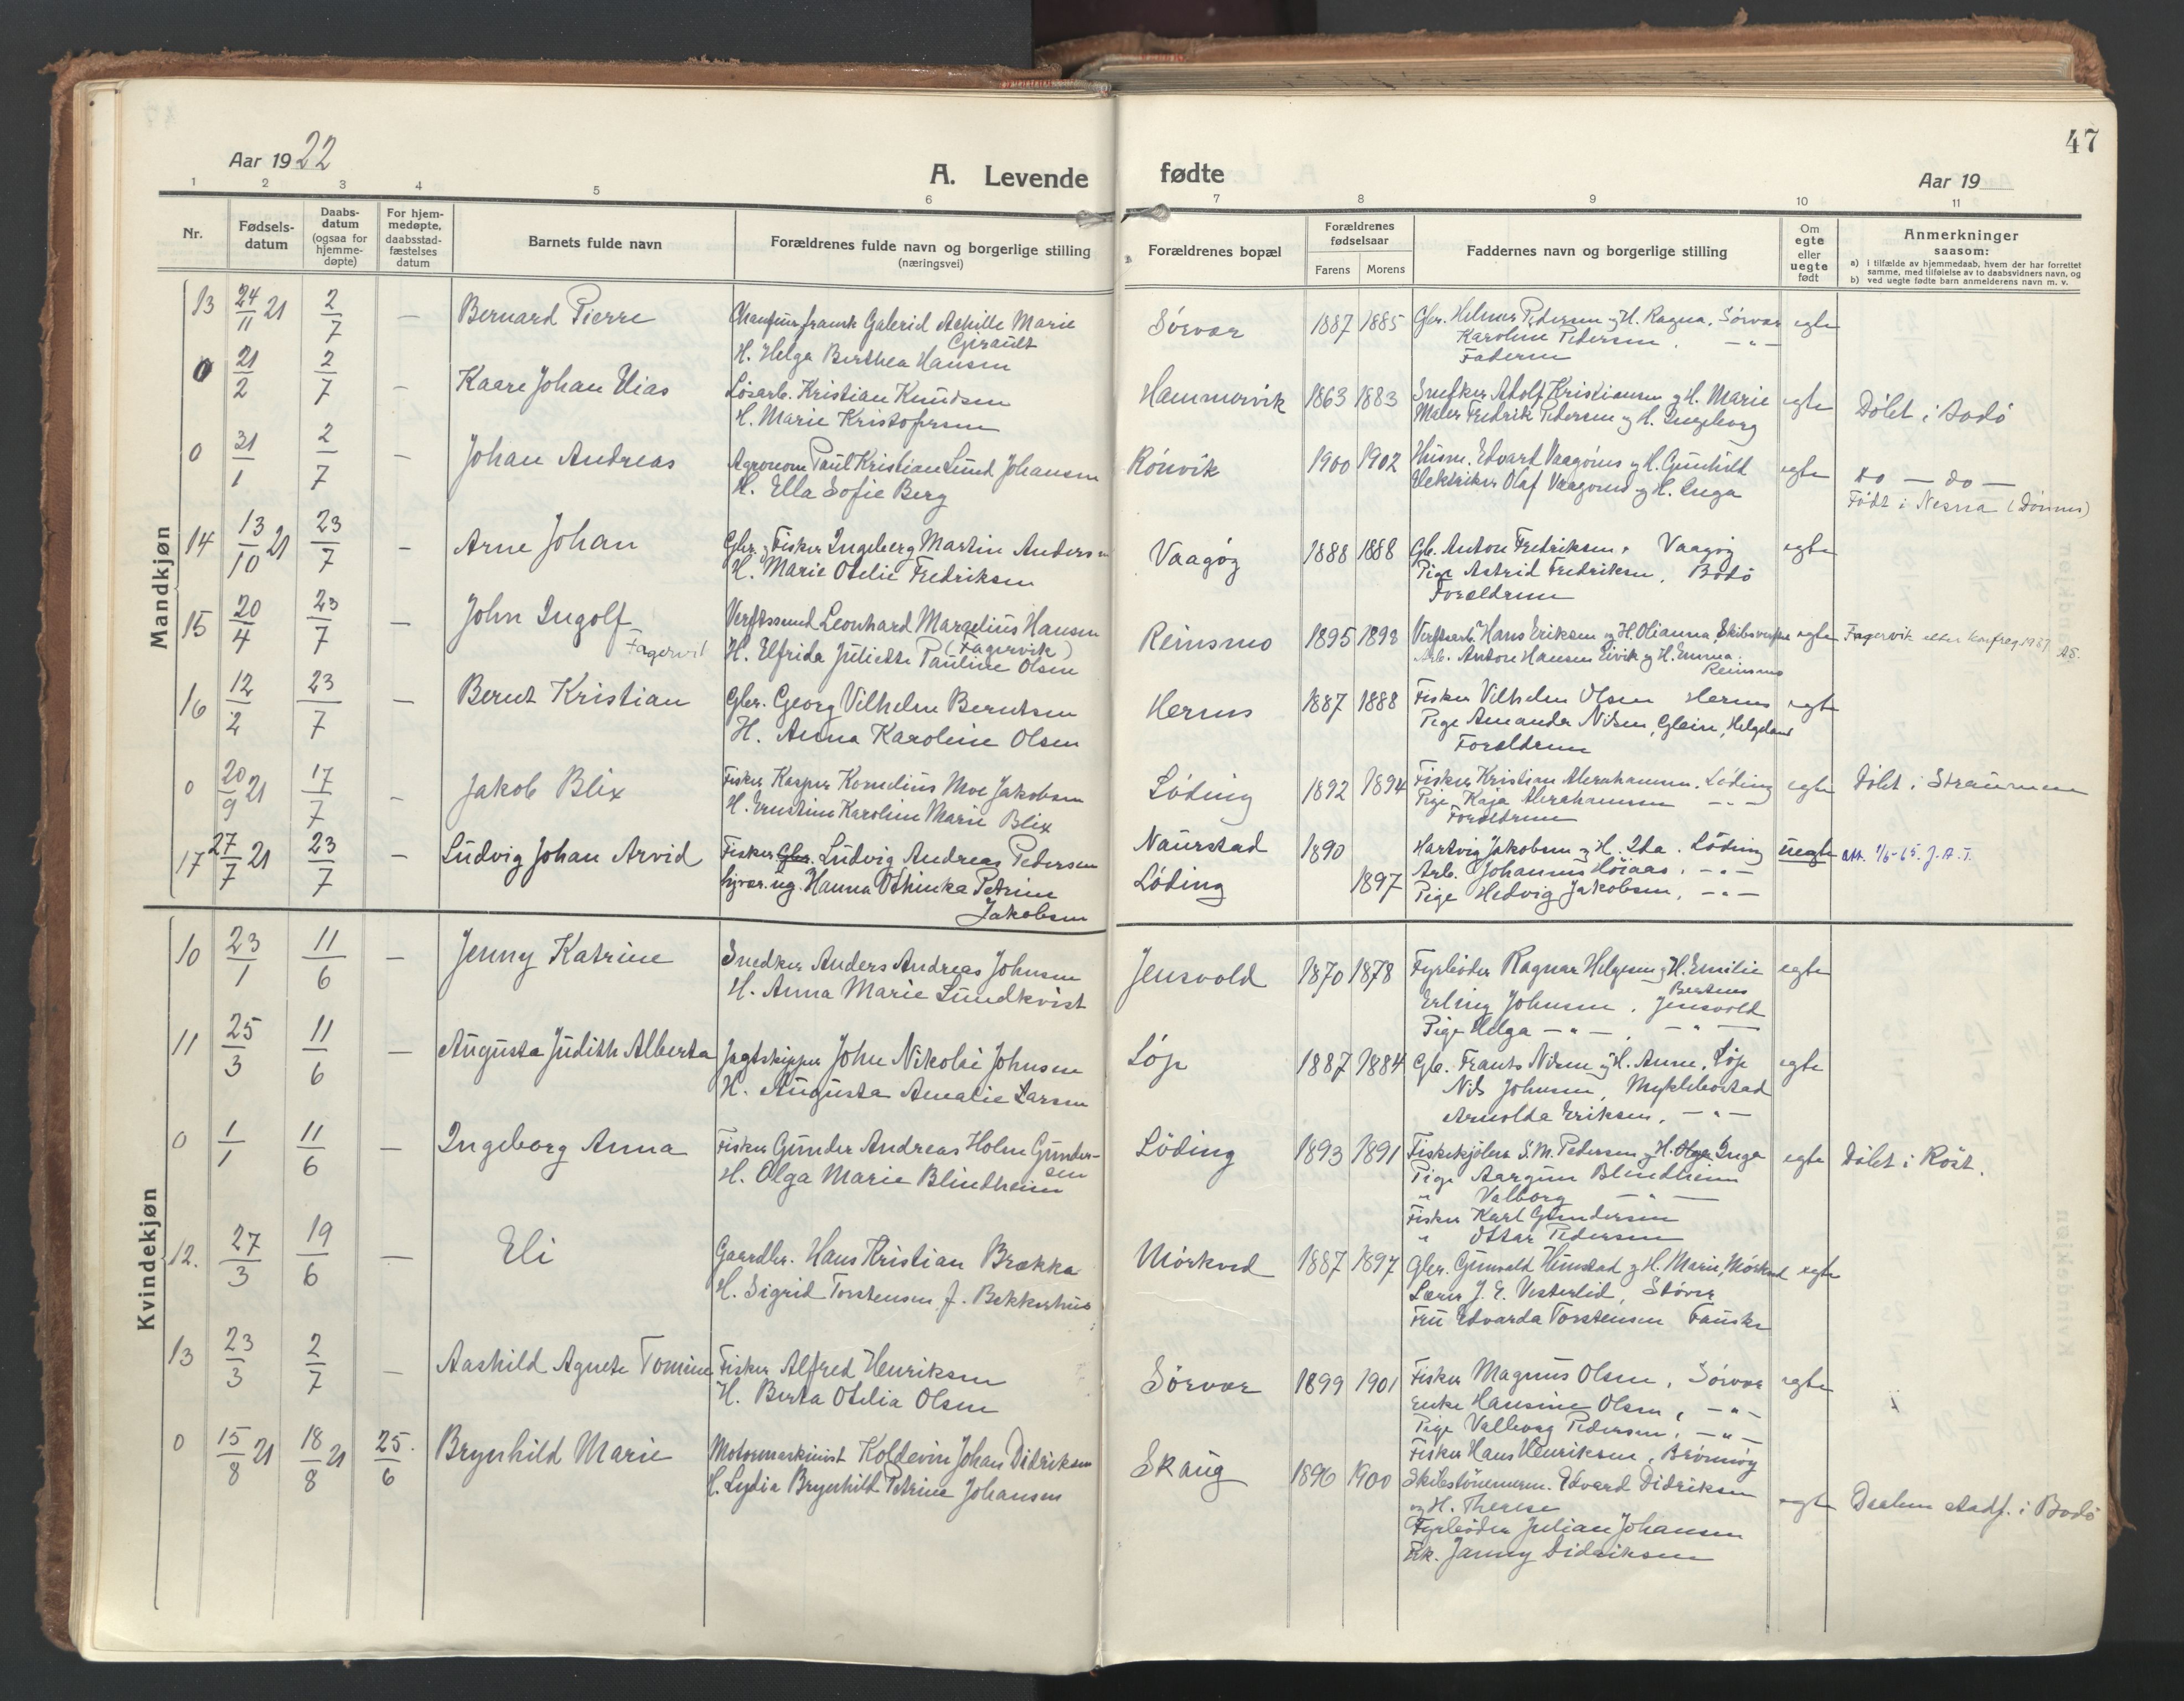 47
Aar 1922
A. Levende
fødte
Aar 19
1 2 3 4 5 6
7 8 9 10 11
Nr.
Fødsels-
datum
Daabs-
datum
(ogsaa for
hjemme-
døpte)
For hjem-
medøpte,
daabsstad-
fæstelses
datum
Barnets fulde navn
Forældrenes fulde navn og borgerlige stilling
(næringsvei)
Forældrenes bopæl
Forældrenes
fødselsaar
Farens Morens
Faddernes navn og borgerlige stilling
Om
egte
eller
uegte
født
Anmerkninger
saasom:
a) i tilfælde av hjemmedaab, hvem der har forrettet
samme, med tilføielse av to daabsvidners navn, og
b) ved uegte fødte barn anmelderens navn m. v.
Mandkjøn
13 24/11 21 2/7 — Bernard Pierre
Marie
Girault
H. Helga Berthea Hansen
Sörvær 1887 1885 Gbr. Helmer Pedersen og H. Ragna, Sörvær egte
Karoline Pedersen, — " —
Faderen
0 21/2 2/7 — Kaare Johan Elias
Lösarb. Kristian Knudsen
H. Marie Kristofersen
Hammervik 1863 1883 Snefker Adolf Kristiansen og H. Marie egte Döbt i Bodö
Maler Fredrik Pedersen og H. Ingeborg
0 31/1 2/7 — Johan Andreas
Agronom Paul Kristian Lund Johansen
H. Ella Sofie Berg
Rönvik 1900 1902 Edvart Vaagönes og H. Gunhild egte do — do —
Elektriker Olaf Vaagönes og H. Inga
Födt i Nesna (Dönnes)
14 13/10 21 23/7 — Arne Johan
Gbr. og Fisker Ingeberg Martin Andersen
H. Marie Otelie Fredriksen
Vaagöy 1888 1888 Gb. Anton Fredriksen, Vaagöy egte
Pige Astrid Fredriksen, Bodö
Foreldrene
15 20/4 23/7 — John Ingolf
Fagervik
Leonhard Margelius Hansen
(Fagervik)
H. Elfrida Juliette Pauline Olsen
Reinsmo 1895 1898 Hans Eriksen og H. Olianna egte Fagervik
Arb. Anton Hansen og H. Emma,
Reinsmo
16 12/2 23/7 — Bernt Kristian
Gbr. Georg Vilhelm Berntsen
H. Anna Karoline Olsen
Hernes 1887 1888 Fisker Vilhelm Olsen Hernes egte
Pige Amanda Nilsen, Glein, Helgeland
Foreldrene
0 20/9 21 17/7 — Jakob Blix
Fisker Kasper Kornelius Moe Jakobsen
H. Ernstine Karoline Marie Blix
Löding 1892 1894 Fisker Kristian Abrahamsen, Löding egte Döbt i Straumen
Pige Kaja Abrahamsen — " —
Foreldrene
17 27/7 21 23/7 — Ludvig Johan Arvid
Fisker Gbr. Ludvig Andreas Pedersen
ug. Hanna Othinka Petrine
Jakobsen
Naurstad 1890 Hartvig Jakobsen og H. Ida, Löding uegte
Löding 1897 Arb. Johannes Höiaas, — " —
Pige Hedvig Jakobsen, — " —
Kvindekjøn
10 23/1 11/6 — Jenny Katrine
Snedker Anders Andreas Johnsen
H. Anna Marie Lundkvist
Jensvold 1870 1878 Fyrböder Ragnar Helgesen og H. Emilie egte
Bertnes
Erling Johnsen, Jensvold
Pige Helga — " —, — " —
11 25/3 11/6 — Augusta Judith Alberta
Jagtskipper John Nikolai Johnsen
H. Augusta Amalie Larsen
Löp 1887 1884 Gb. Frants Nilsen og H. Anne, Löp egte
Nils Johnsen, Myklebostad
Arnolda Eriksen, — " —
0 1/1 11/6 — Ingeborg Anna
Fisker Gunder Andreas Holm Gunder-
sen
H. Olga Marie Blindheim
Löding 1893 1891 Fiskekjöber S. M. Pedersen og H. Olga Inga egte Döbt i Röst.
Pige Aargun Blindheim
" Valborg — " —
Fisker Karl Gundersen
" Ottar Pedersen
12. 27/3 19/6 — Eli
Gaardbr. Hans Kristian Brækka
H. Sigrid Torstensen f. Bekkerhus
Mörkved 1887 1897 Gbr. Gunvald Himstad og H. Marie, Mörkved egte
Lærer J. E. Vesterlid, Stöver
Fru Edvarda Torstensen Fauske
13 23/3 2/7 — Aashild Agnete Tomine
Fisker Alfred Henriksen
H. Berta Otelia Olsen
Sörvær 1899 1901 Fisker Magnus Olsen, Sörvær egte
Enke Hansine Olsen, — " —
Pige Valborg Pedersen, — " —
Fisker Hans Henriksen, Brönnöy
0 15/8 21 18/8 21 25/6 Brynhild Marie
Motormaskinist Koldevin Johan Didriksen
H. Lydia Brynhild Petrine Johansen
Skaug 1896 1900 Skibstömmerm. Edvard Didriksen
og H. Therese egte Daaben stadf. i Bodö
Fyrböder Julian Johansen
Frk. Jenny Didriksen